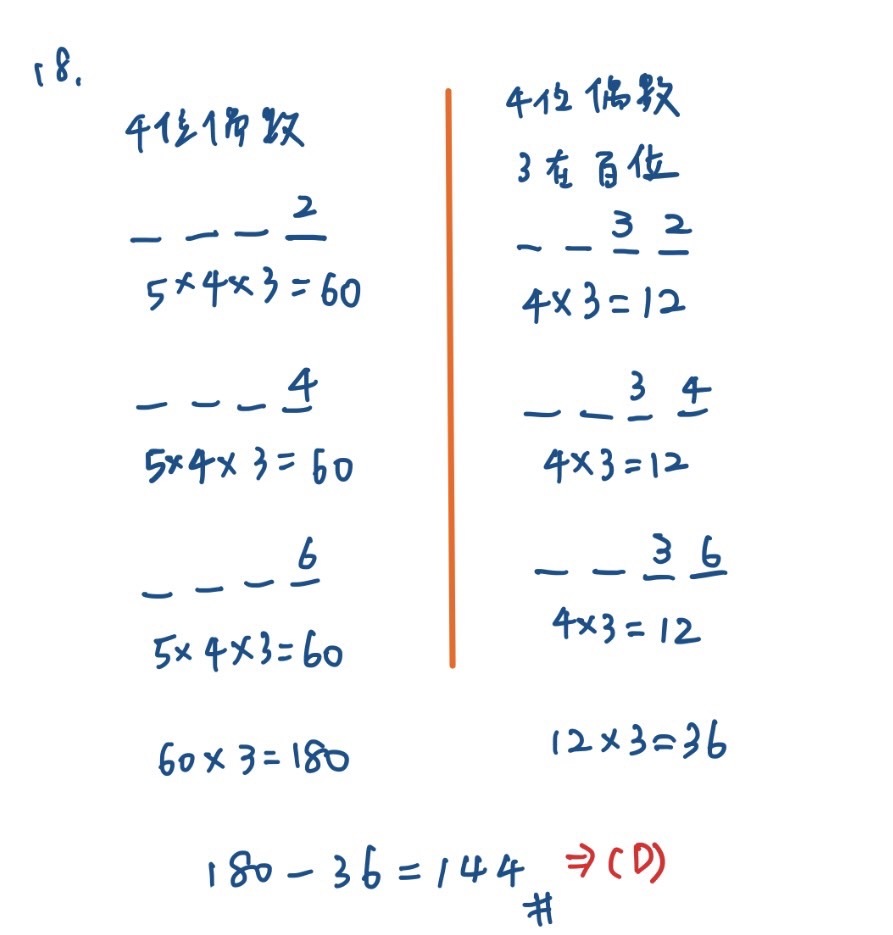 18.
4位偶数
_ _ _ 2
5×4×3=60
_ _ _ 4
5×4×3=60
_ _ _ 6
5×4×3=60
60×3=180
4位偶数
3在百位
_ _ 3 2
4×3=12
_ _ 3 4
4×3=12
_ _ 3 6
4×3=12
12×3=36
180-36=144# ⇒(D)